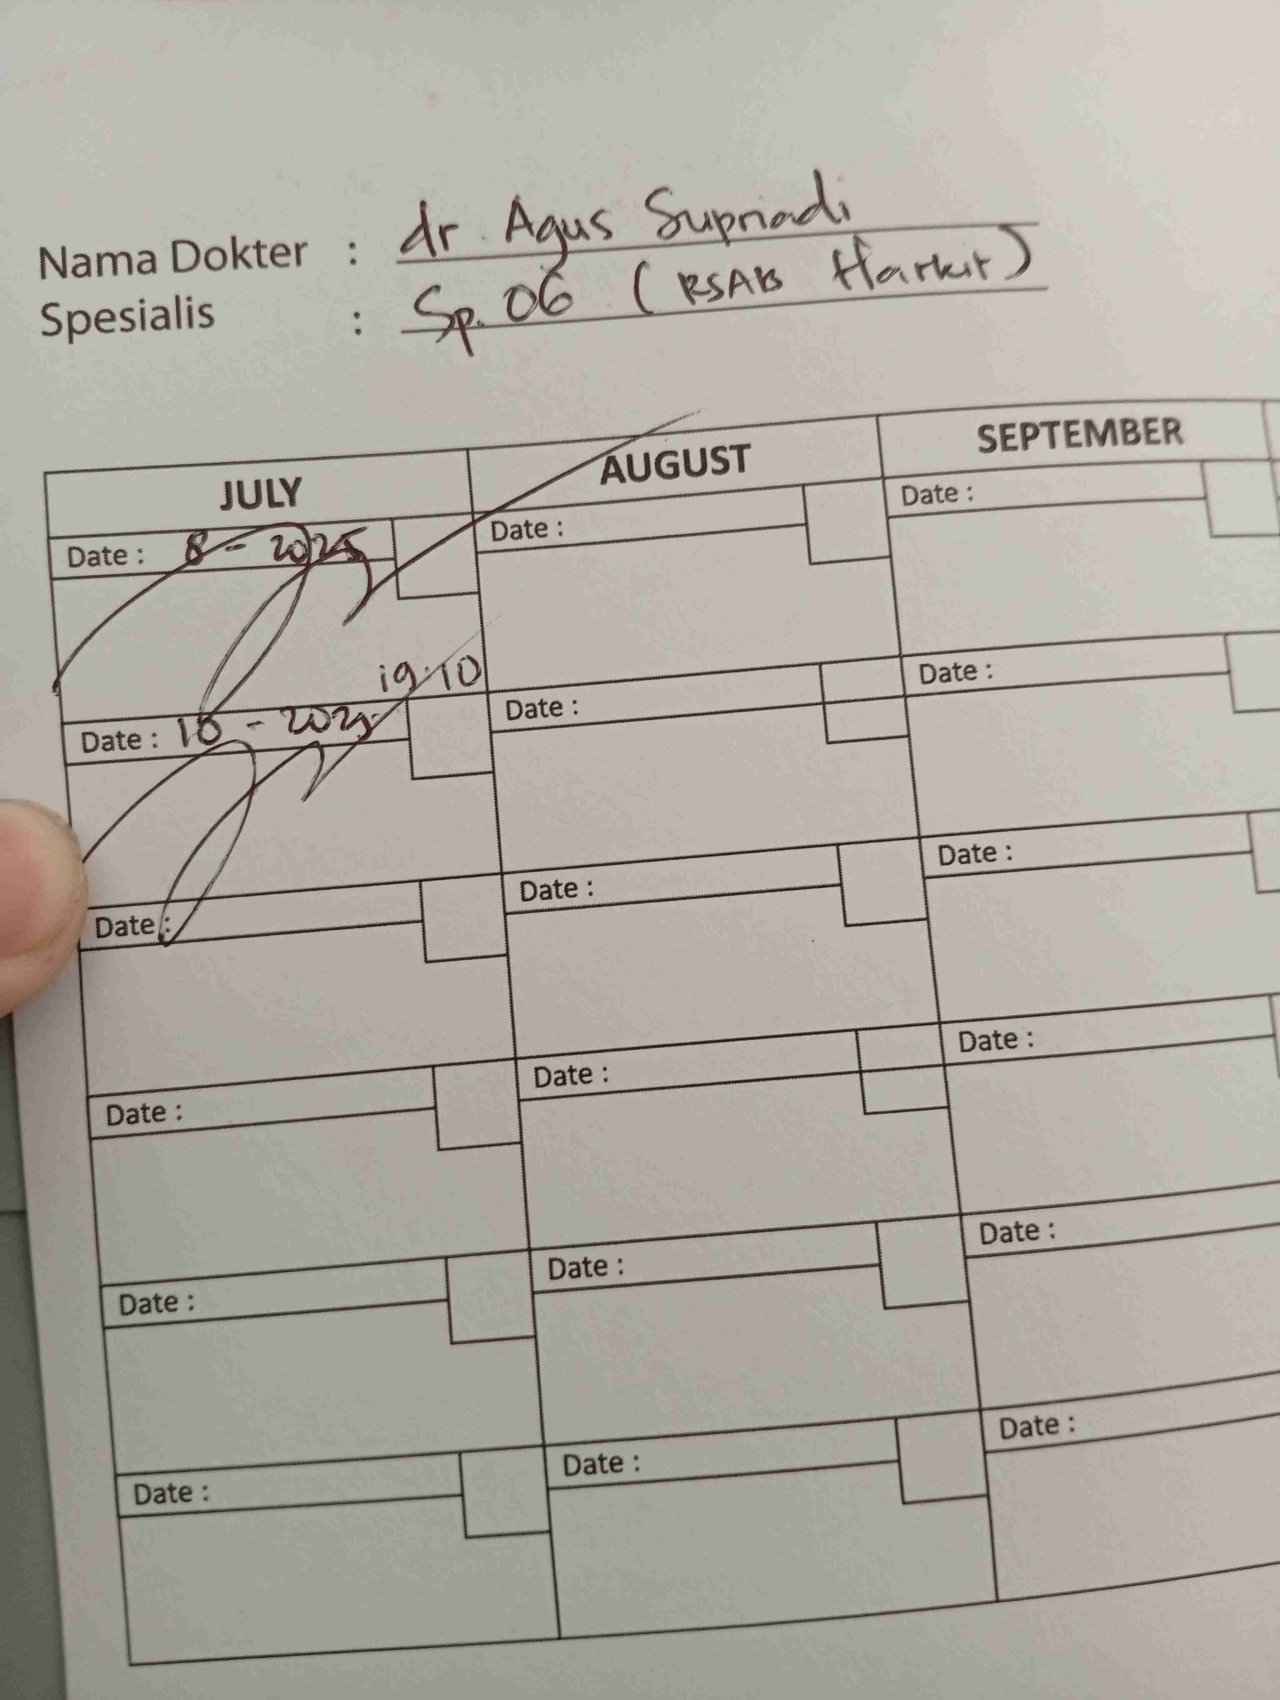 Nama Dokter : dr. Agus Supriadi
Spesialis : Sp. OG (RSAB Harkit)
JULY AUGUST SEPTEMBER
Date : 8 - 2025 Date : Date :
19.10
Date : 10 - 2025 Date : Date :
Date : Date : Date :
Date : Date : Date :
Date : Date : Date :
Date : Date : Date :